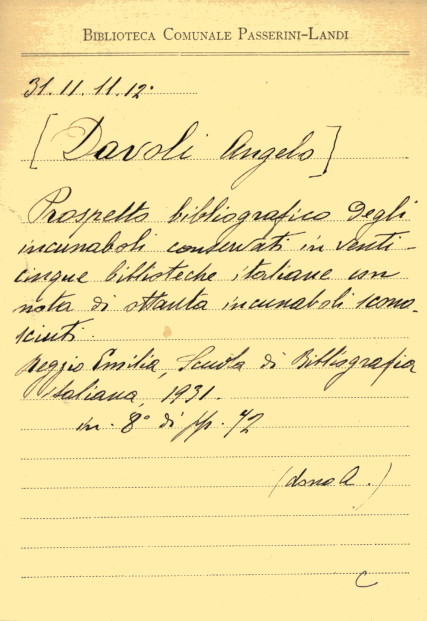 BIBLIOTECA COMUNALE PASSERINI-LANDI
31.11.11.12.
[Davoli Angelo]
Prospetto bibliografico degli
incunaboli conservati in venti-
cinque biblioteche italiane con
nota di ottanta incunaboli scono-
sciuti.
Reggio Emilia, Scuola di Bibliografia
italiana, 1931.
in-8° di pp. 42
(dono A.)
C